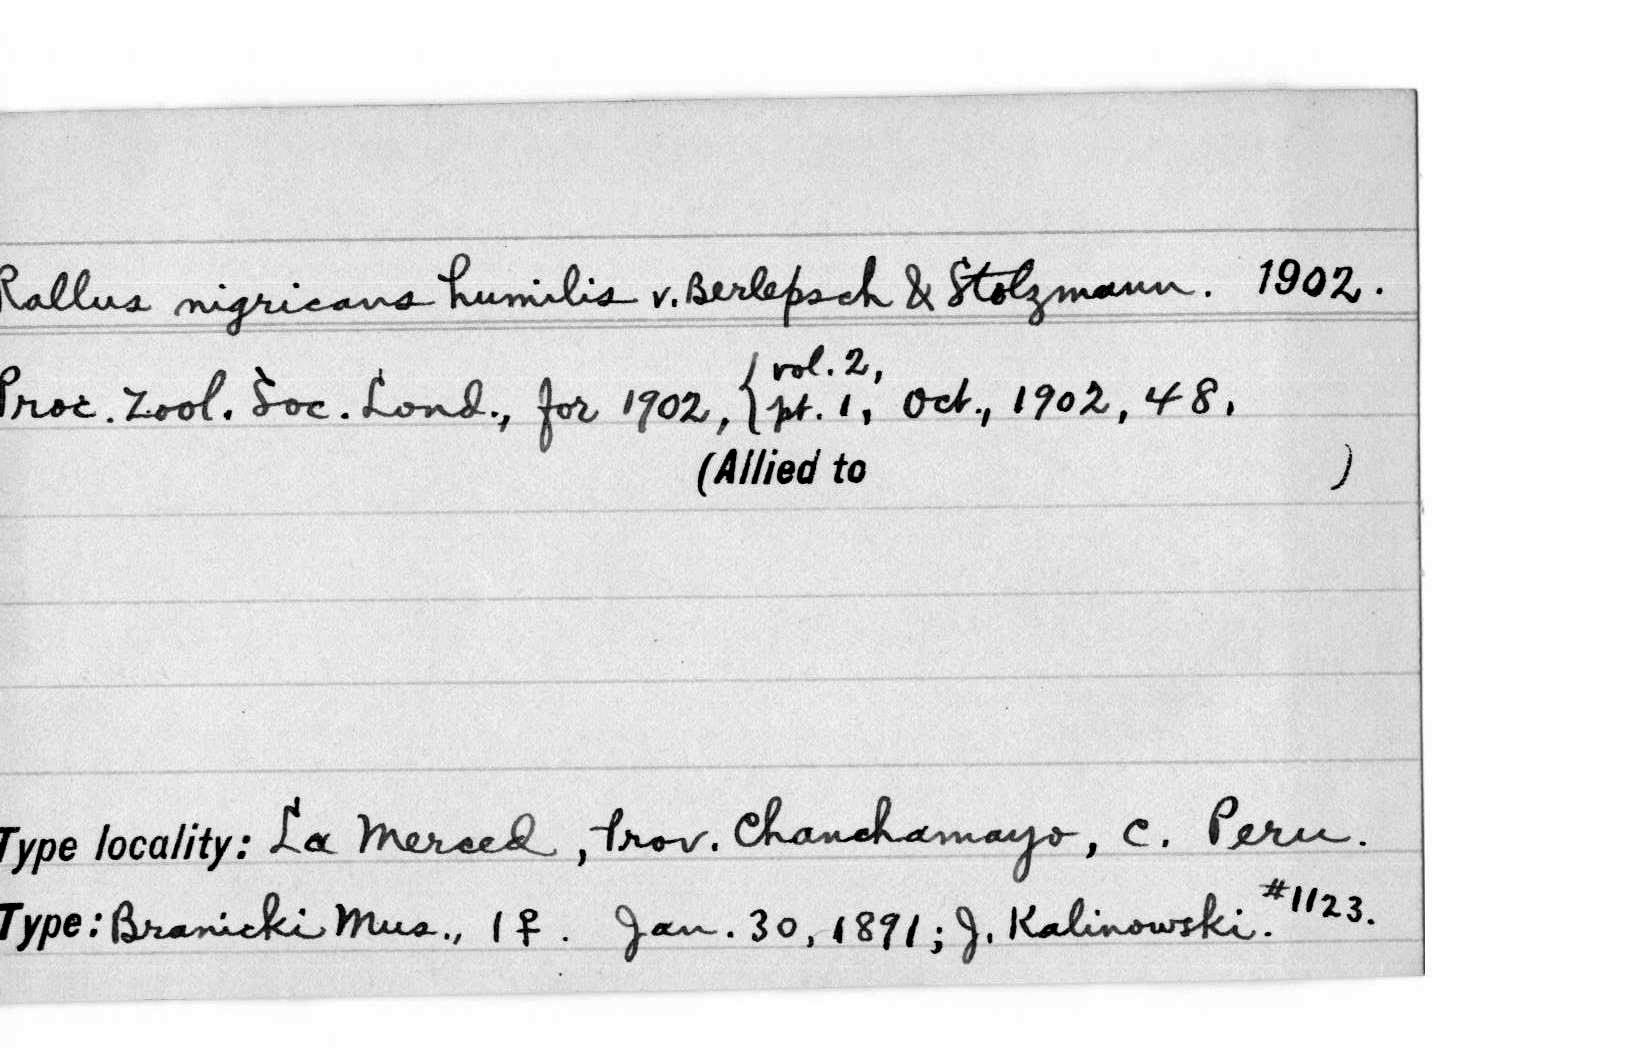 Rallus nigricans humilis v. Berlepsch & Stolzmann. 1902.
Proc. Zool. Soc. Lond., for 1902, { vol. 2,
pt. 1, Oct., 1902, 48.
(Allied to )
Type locality: La Merced, Prov. Chanchamayo, C. Peru.
Type: Branicki Mus., 1♀. Jan. 30, 1891; J. Kalinowski. #1123.